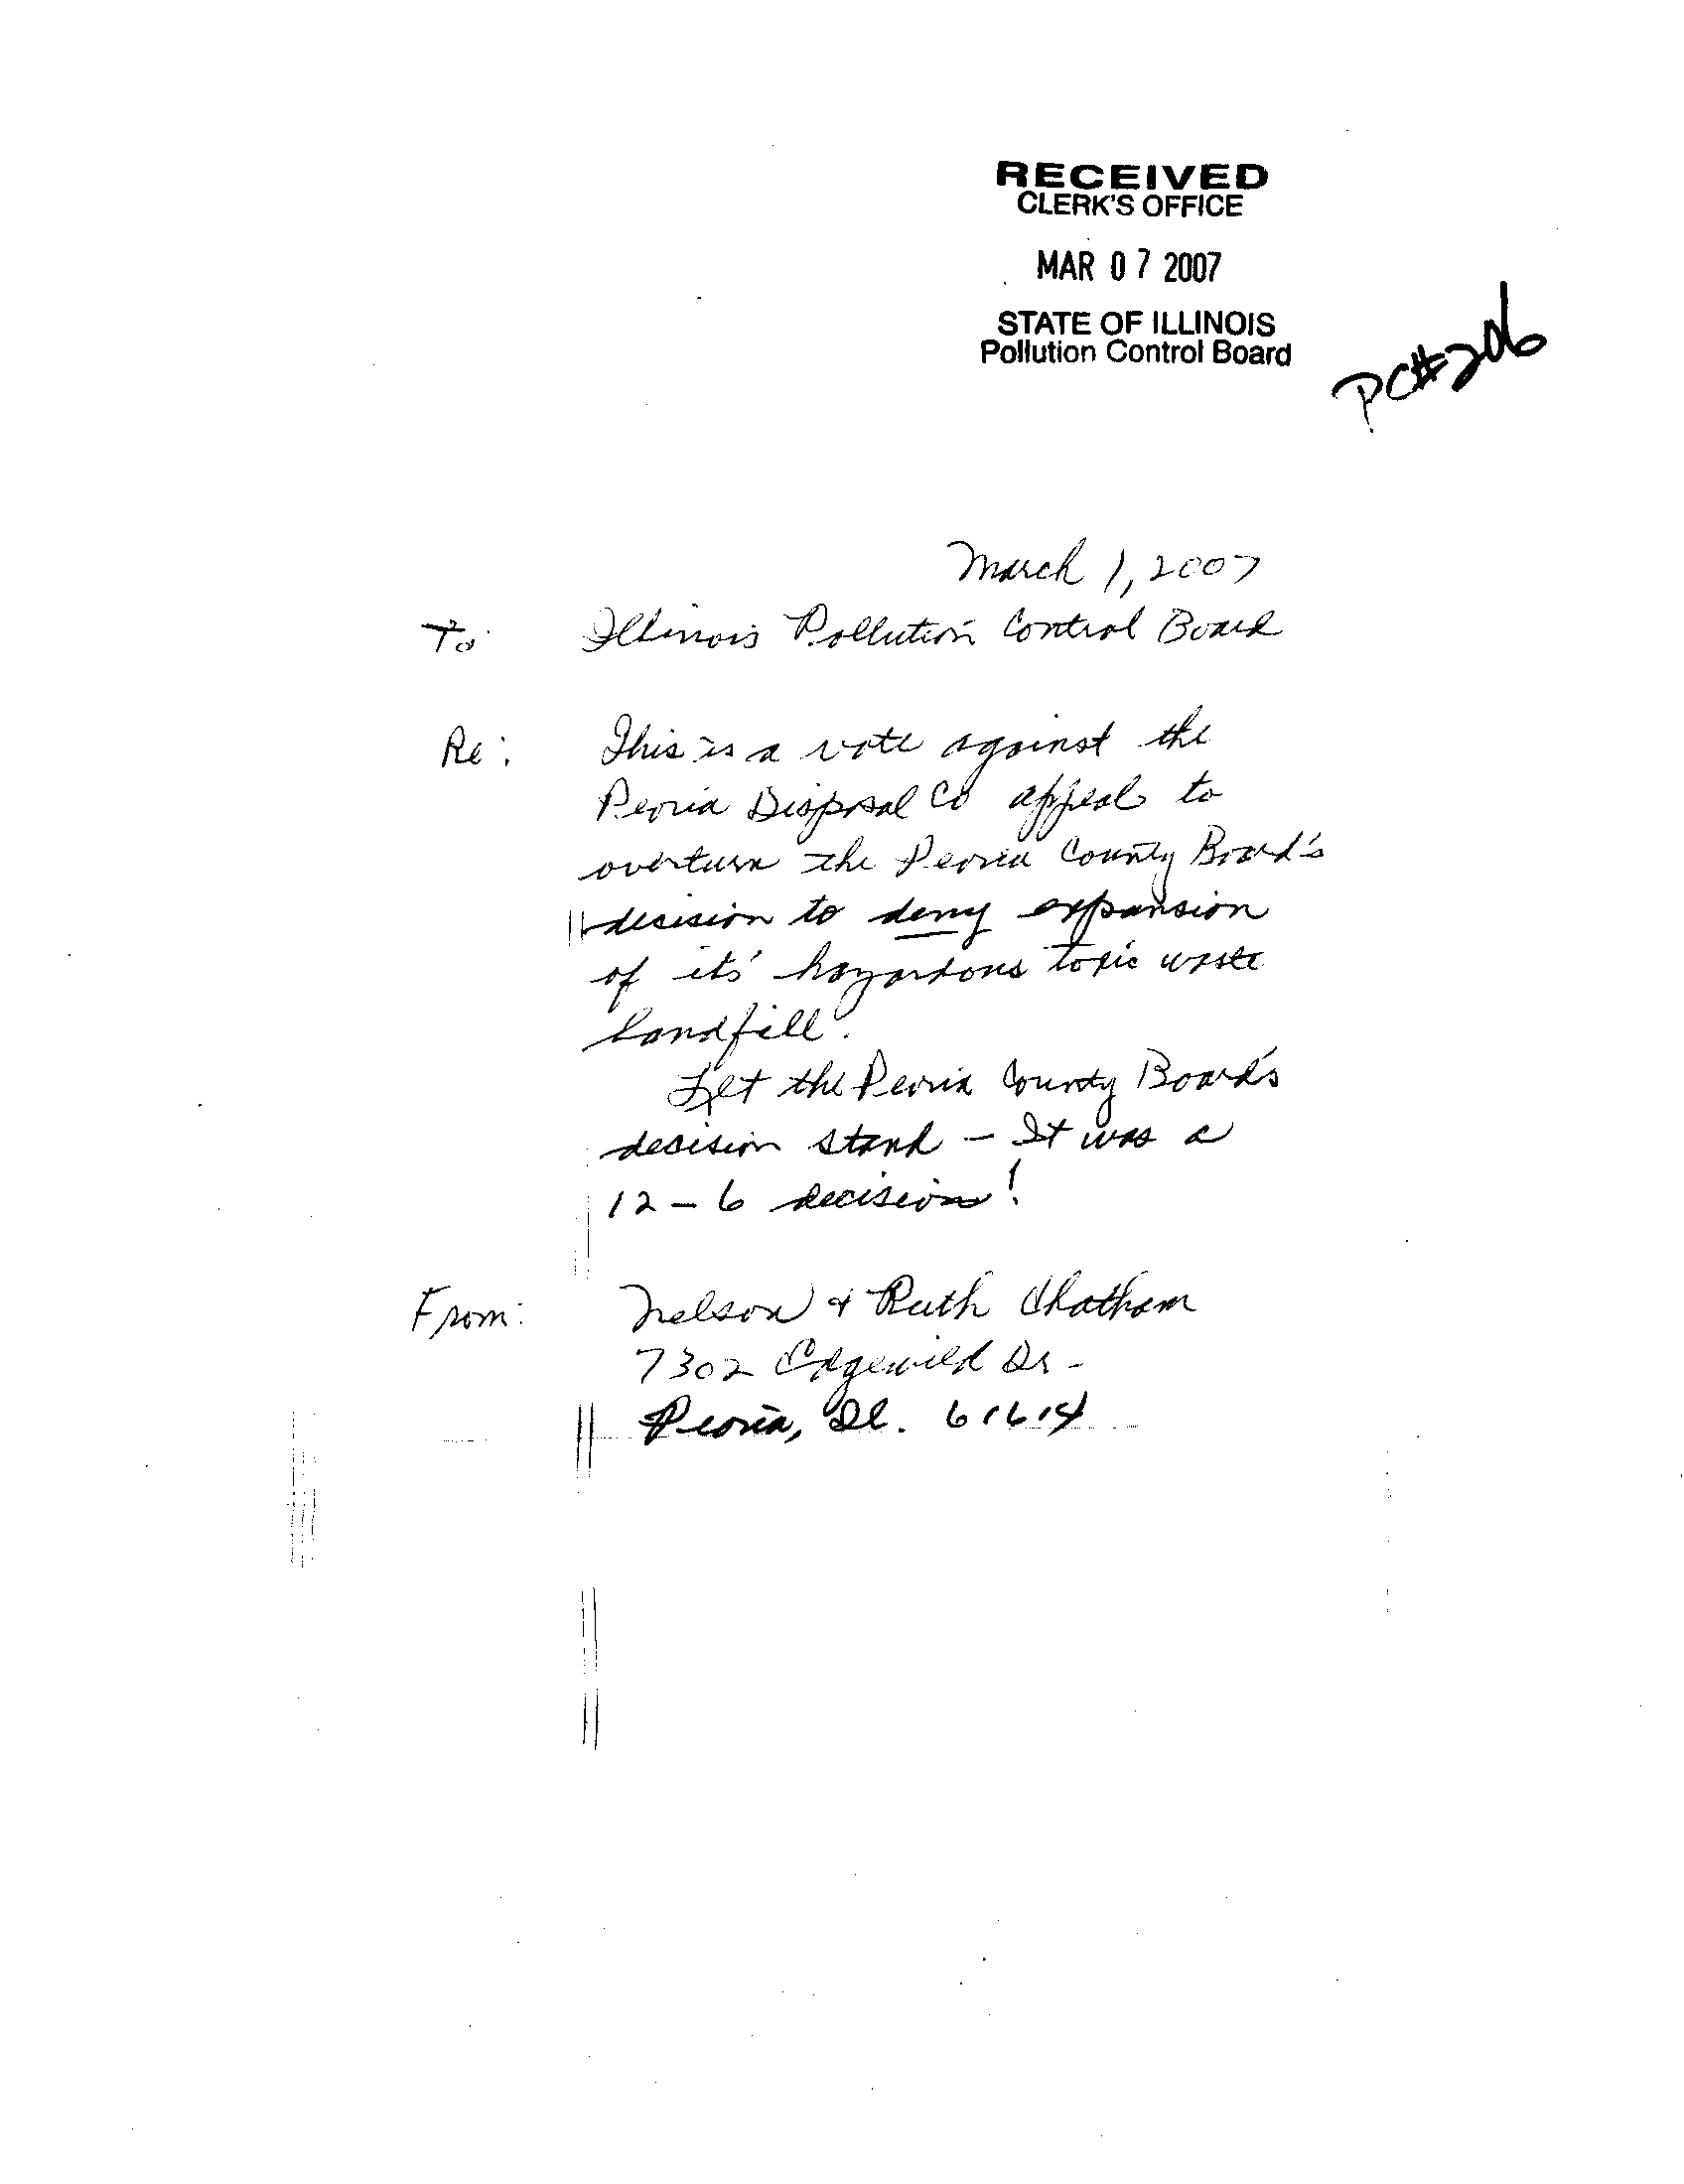 RECEIVED
CLERK'S OFFICE
MAR 07 2007
STATE OF ILLINOIS
Pollution Control Board
PC#206
March 1, 2007
To: Illinois Pollution Control Board
Re: This is a vote against the
Peoria Disposal Co appeal to
overturn the Peoria County Board's
decision to deny expansion
of its' hazardous toxic waste
landfill.
Let the Peoria County Board's
decision stand – It was a
12 – 6 decision!
From: Nelson & Ruth Chatham
7302 Edgewild Dr.
Peoria, Il. 61614